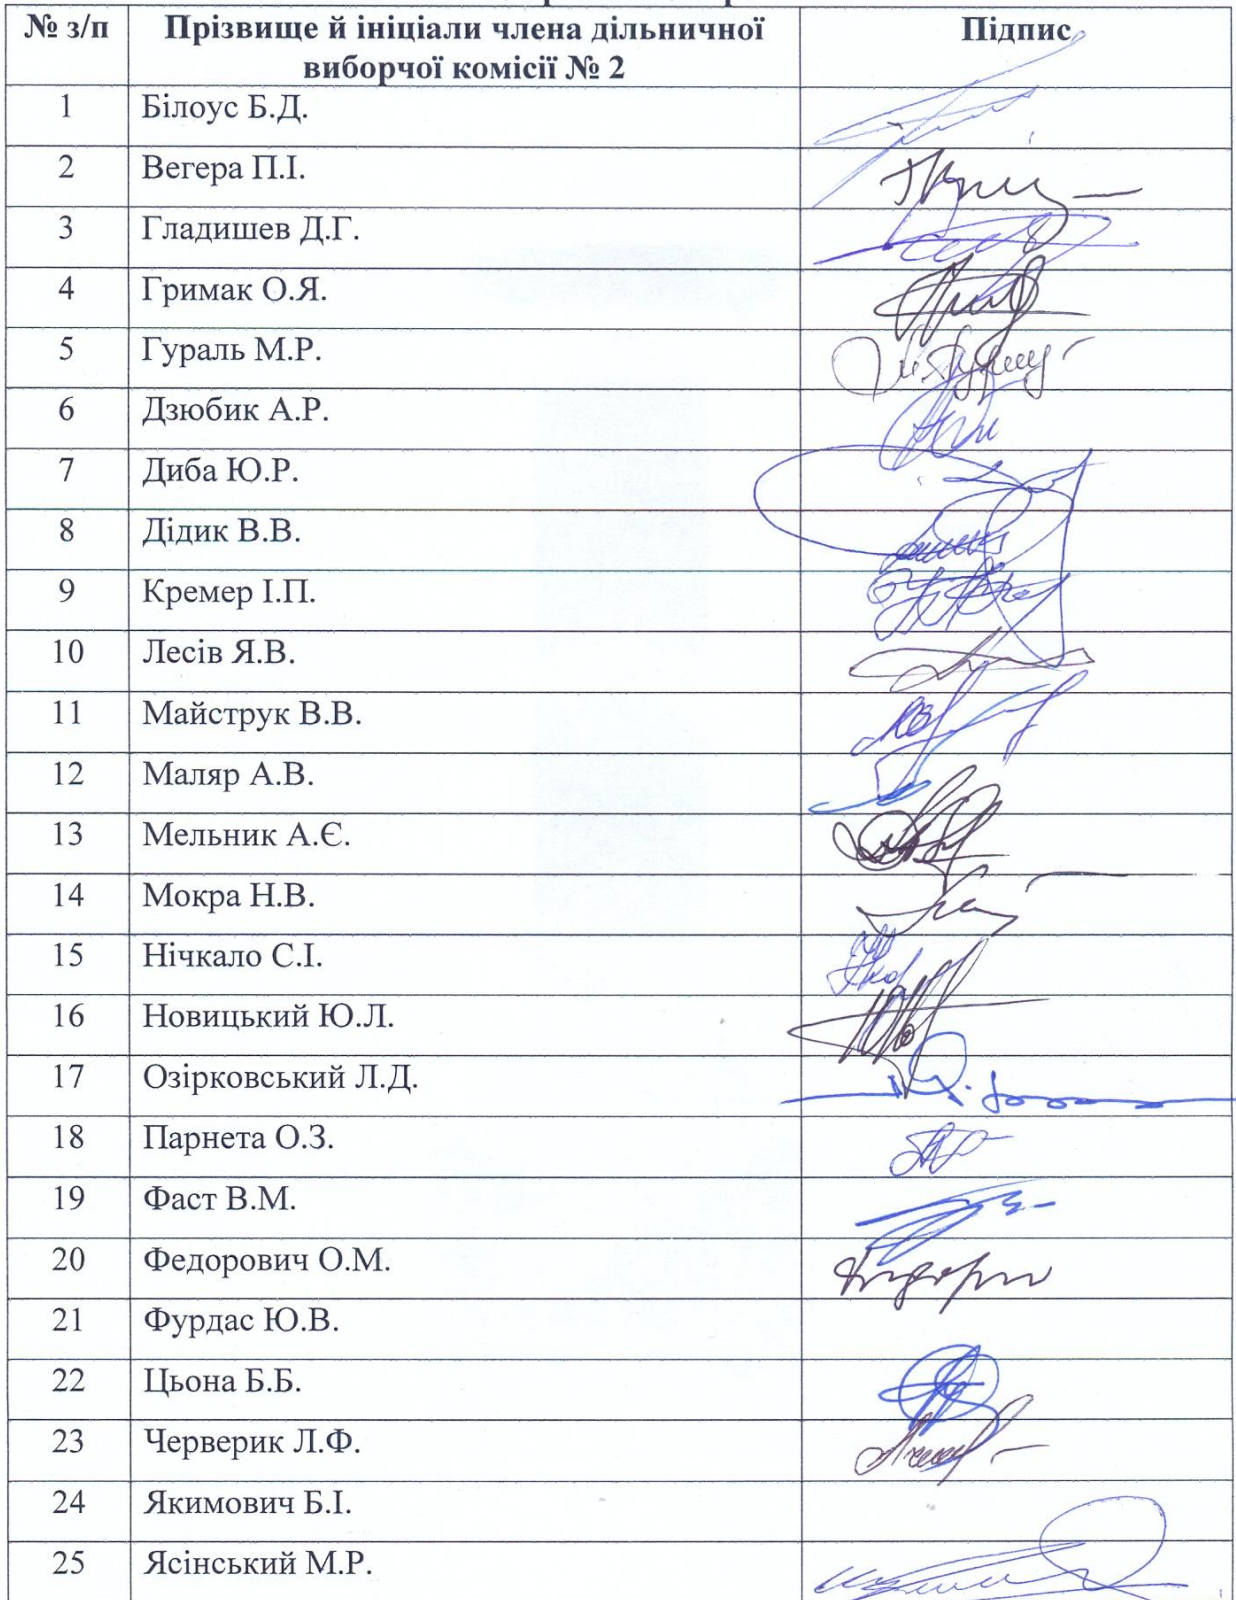 № з/п Прізвище й ініціали члена дільничної Підпис
виборчої комісії № 2
1 Білоус Б.Д.
2 Вегера П.І.
3 Гладишев Д.Г.
4 Гримак О.Я.
5 Гураль М.Р.
6 Дзюбик А.Р.
7 Диба Ю.Р.
8 Дідик В.В.
9 Кремер І.П.
10 Лесів Я.В.
11 Майструк В.В.
12 Маляр А.В.
13 Мельник А.Є.
14 Мокра Н.В.
15 Нічкало С.І.
16 Новицький Ю.Л.
17 Озірковський Л.Д.
18 Парнета О.З.
19 Фаст В.М.
20 Федорович О.М.
21 Фурдас Ю.В.
22 Цьона Б.Б.
23 Червeрик Л.Ф.
24 Якимович Б.І.
25 Ясінський М.Р.